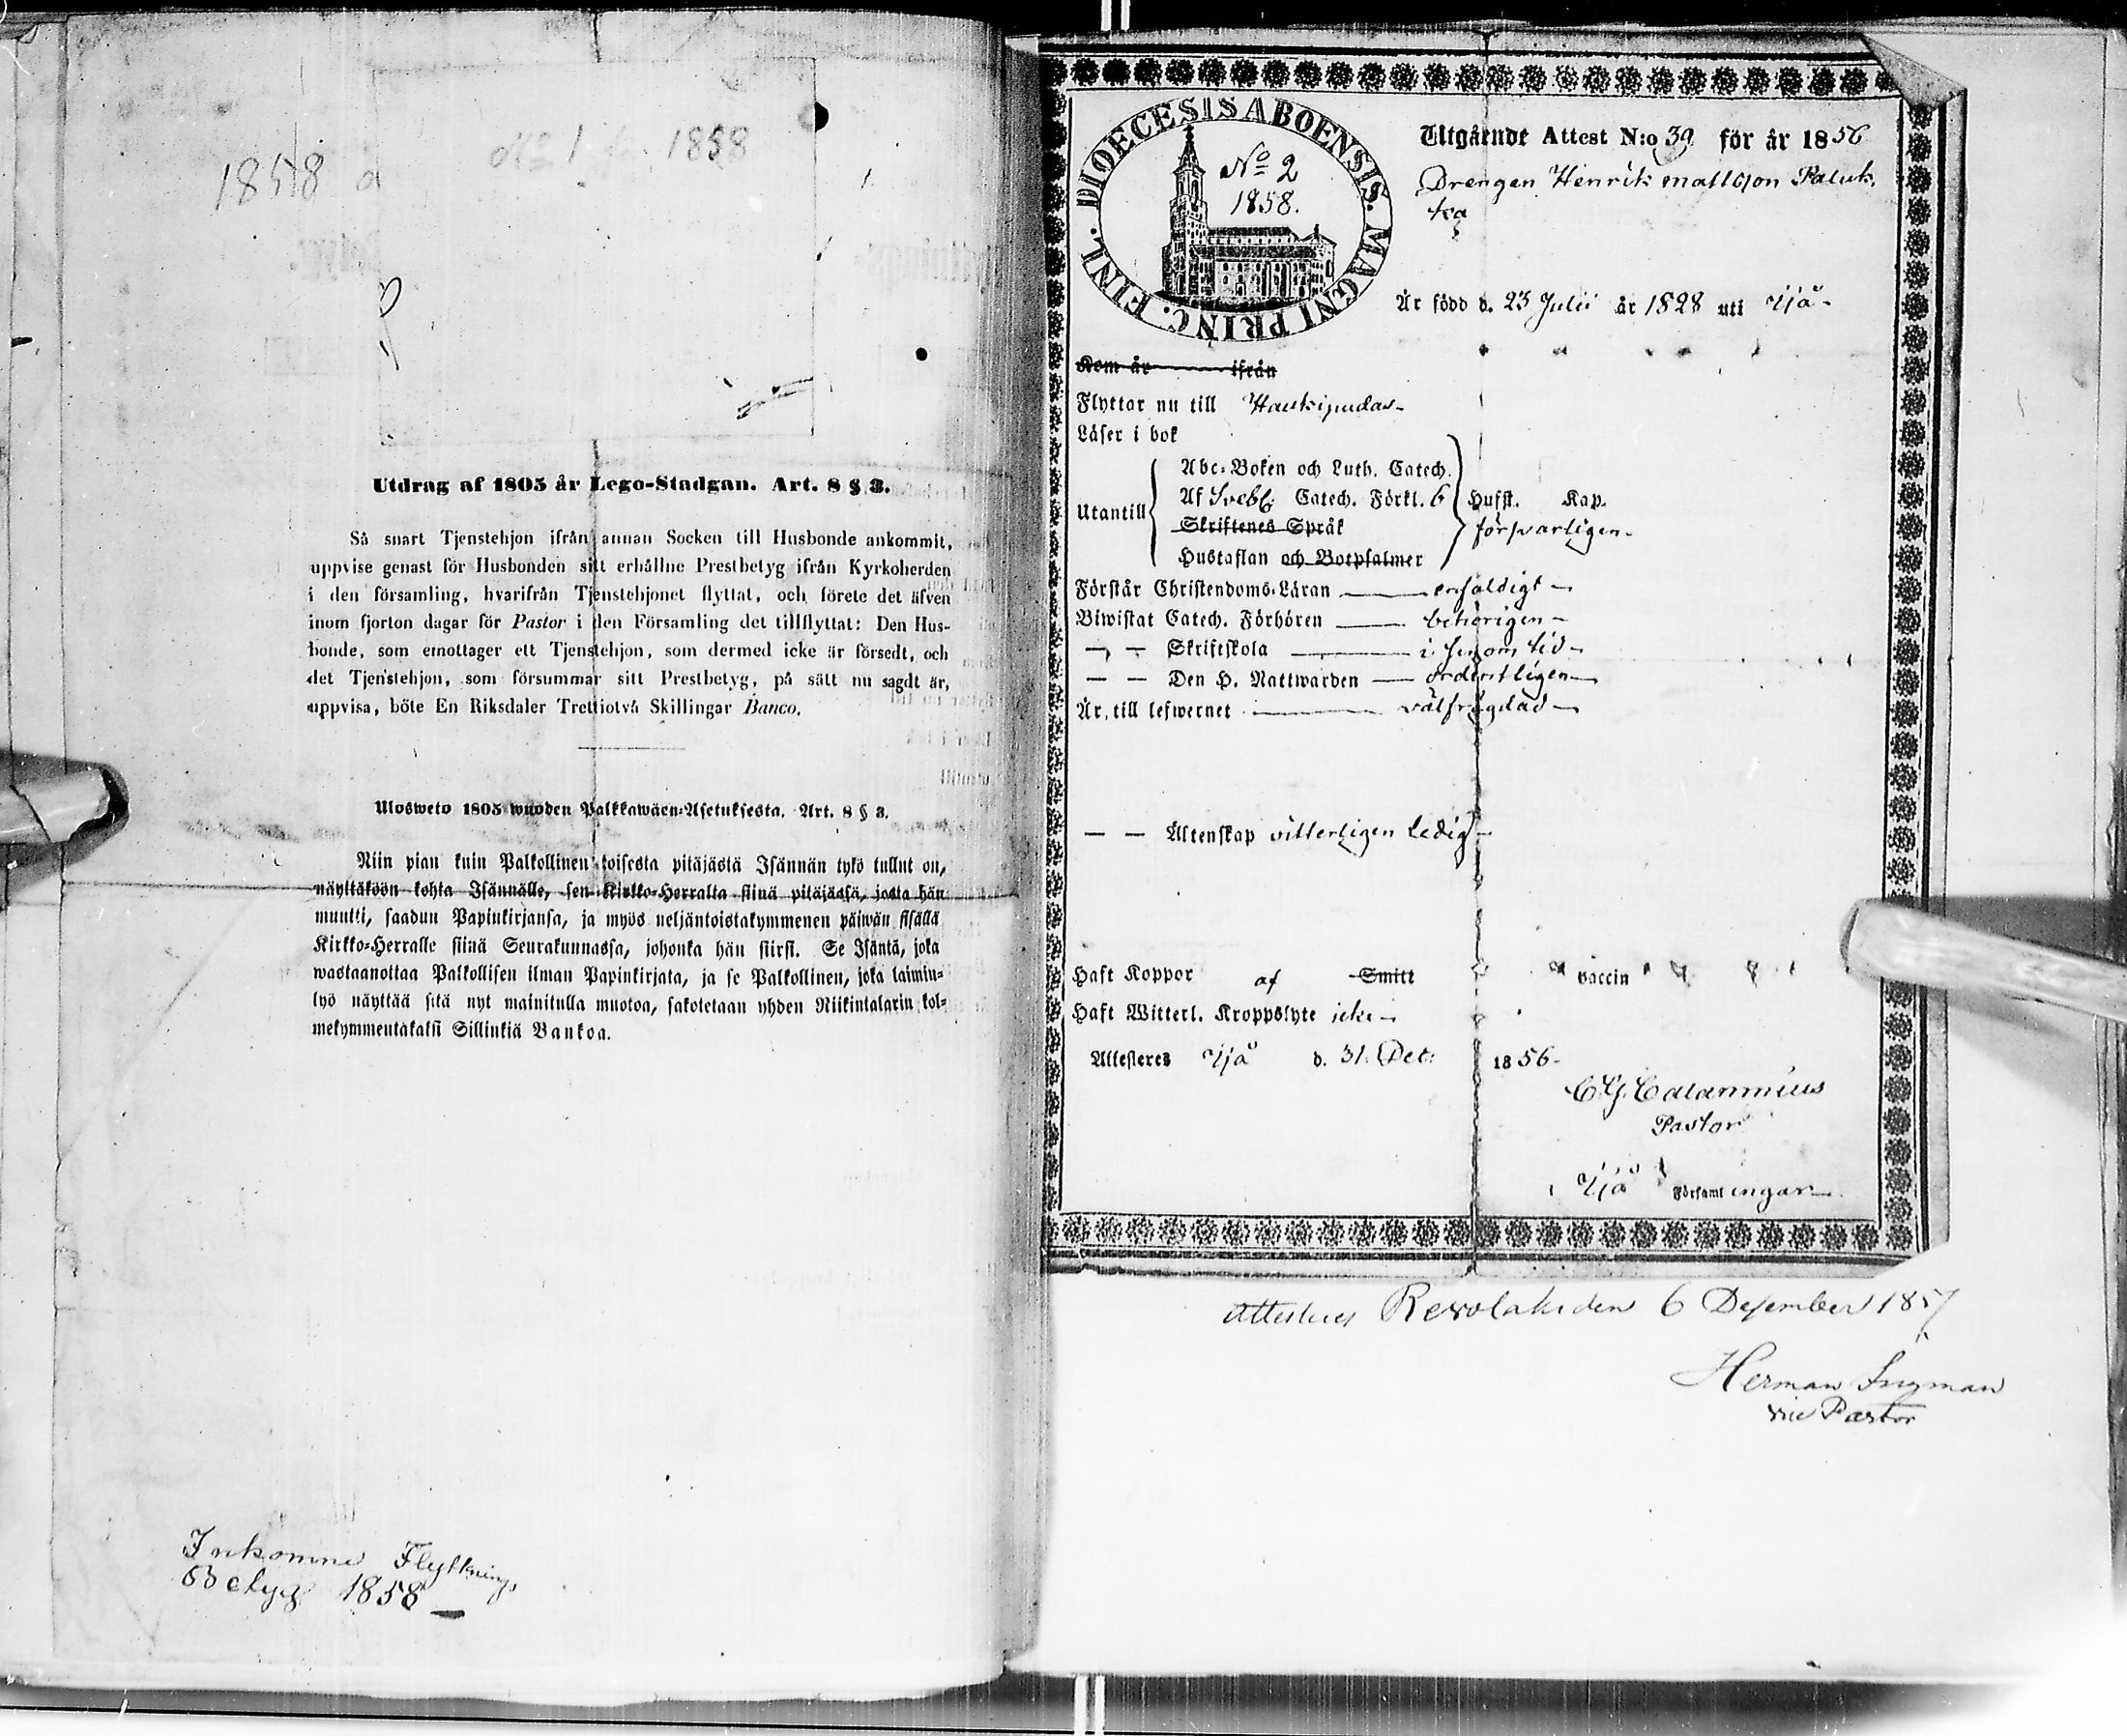 1858
No 1 1858
Utdrag af 1805 år Lego-Stadgan. Art. 8 § 3.
Så snart Tjenstehjon ifrån annan Socken till Husbonde ankommit,
uppvise genast för Husbonden sitt erhållne Prestbetyg ifrån Kyrkoherden
i den församling, hvarifrån Tjenstehjonet flyttat, och förete det äfven
inom fjorton dagar för Pastor i den Församling det tillflyttat: Den Hus-
bonde, som emottager ett Tjenstehjon, som dermed icke är försedt, och
det Tjenstehjon, som försummar sitt Prestbetyg, på sätt nu sagdt är,
uppvisa, böte En Riksdaler Trettiotvå Skillingar Banco.
Ulosweto 1805 wuoden Palkkawäen-Asetuksesta. Art. 8 § 3.
Niin pian kuin Palkollinen toisesta pitäjästä Isännän tykö tullut on,
näyttäköön kohta Isännälle, sen Kirkko-Herralta siinä pitäjässä, josta hän
muutti, saadun Papinkirjansa, ja myös neljäntoistakymmenen päiwän sisällä
Kirkko-Herralle siinä Seurakunnassa, johonka hän siirsi. Se Isäntä, joka
wastaanottaa Palkollisen ilman Papinkirjata, ja se Palkollinen, joka laimin-
lyö näyttää sitä nyt mainitulla muotoa, sakotetaan yhden Riikintalarin kol-
mekymmentäkaksi Sillinkiä Bankoa.
Inkomne Flyttnings
Betyg 1858
DIOECESIS ABOENSIS. MAGNI PRINC. FINL.
No 2
1858.
Utgående Attest N:o 39 för år 1856
Drengen Henrik Mattsson Paluk
ka
Är född d. 23 Julii år 1828 uti Ijå
Kom år ifrån
Flyttar nu till Haukipudas
Läser i bok
Abc-Boken och Luth. Catech.
Utantill
Af Svebil. Catech. Förkl. 6 Hufst. Kap.
Skriftenes Språk försvarligen
Hustaflan och Botpsalmer
Förstår Christendoms-Läran enfaldigt
Biwistat Catech. Förhören behörigen
— — Skriftskola i sinom tid
— — Den H. Nattwarden ordentligen
Är, till lefwernet välfrägdad
— — Äktenskap vitterligen ledig
Haft Koppor af Smitt vaccin
Haft Witterl. Kroppslyte icke
Attesteres Ijå d. 31. Dec: 1856
C.G. Calamnius
Pastor
Ijå Församlingar
Attesteres Revolaks den 6 December 1857
Herman Ingman
vice Pastor